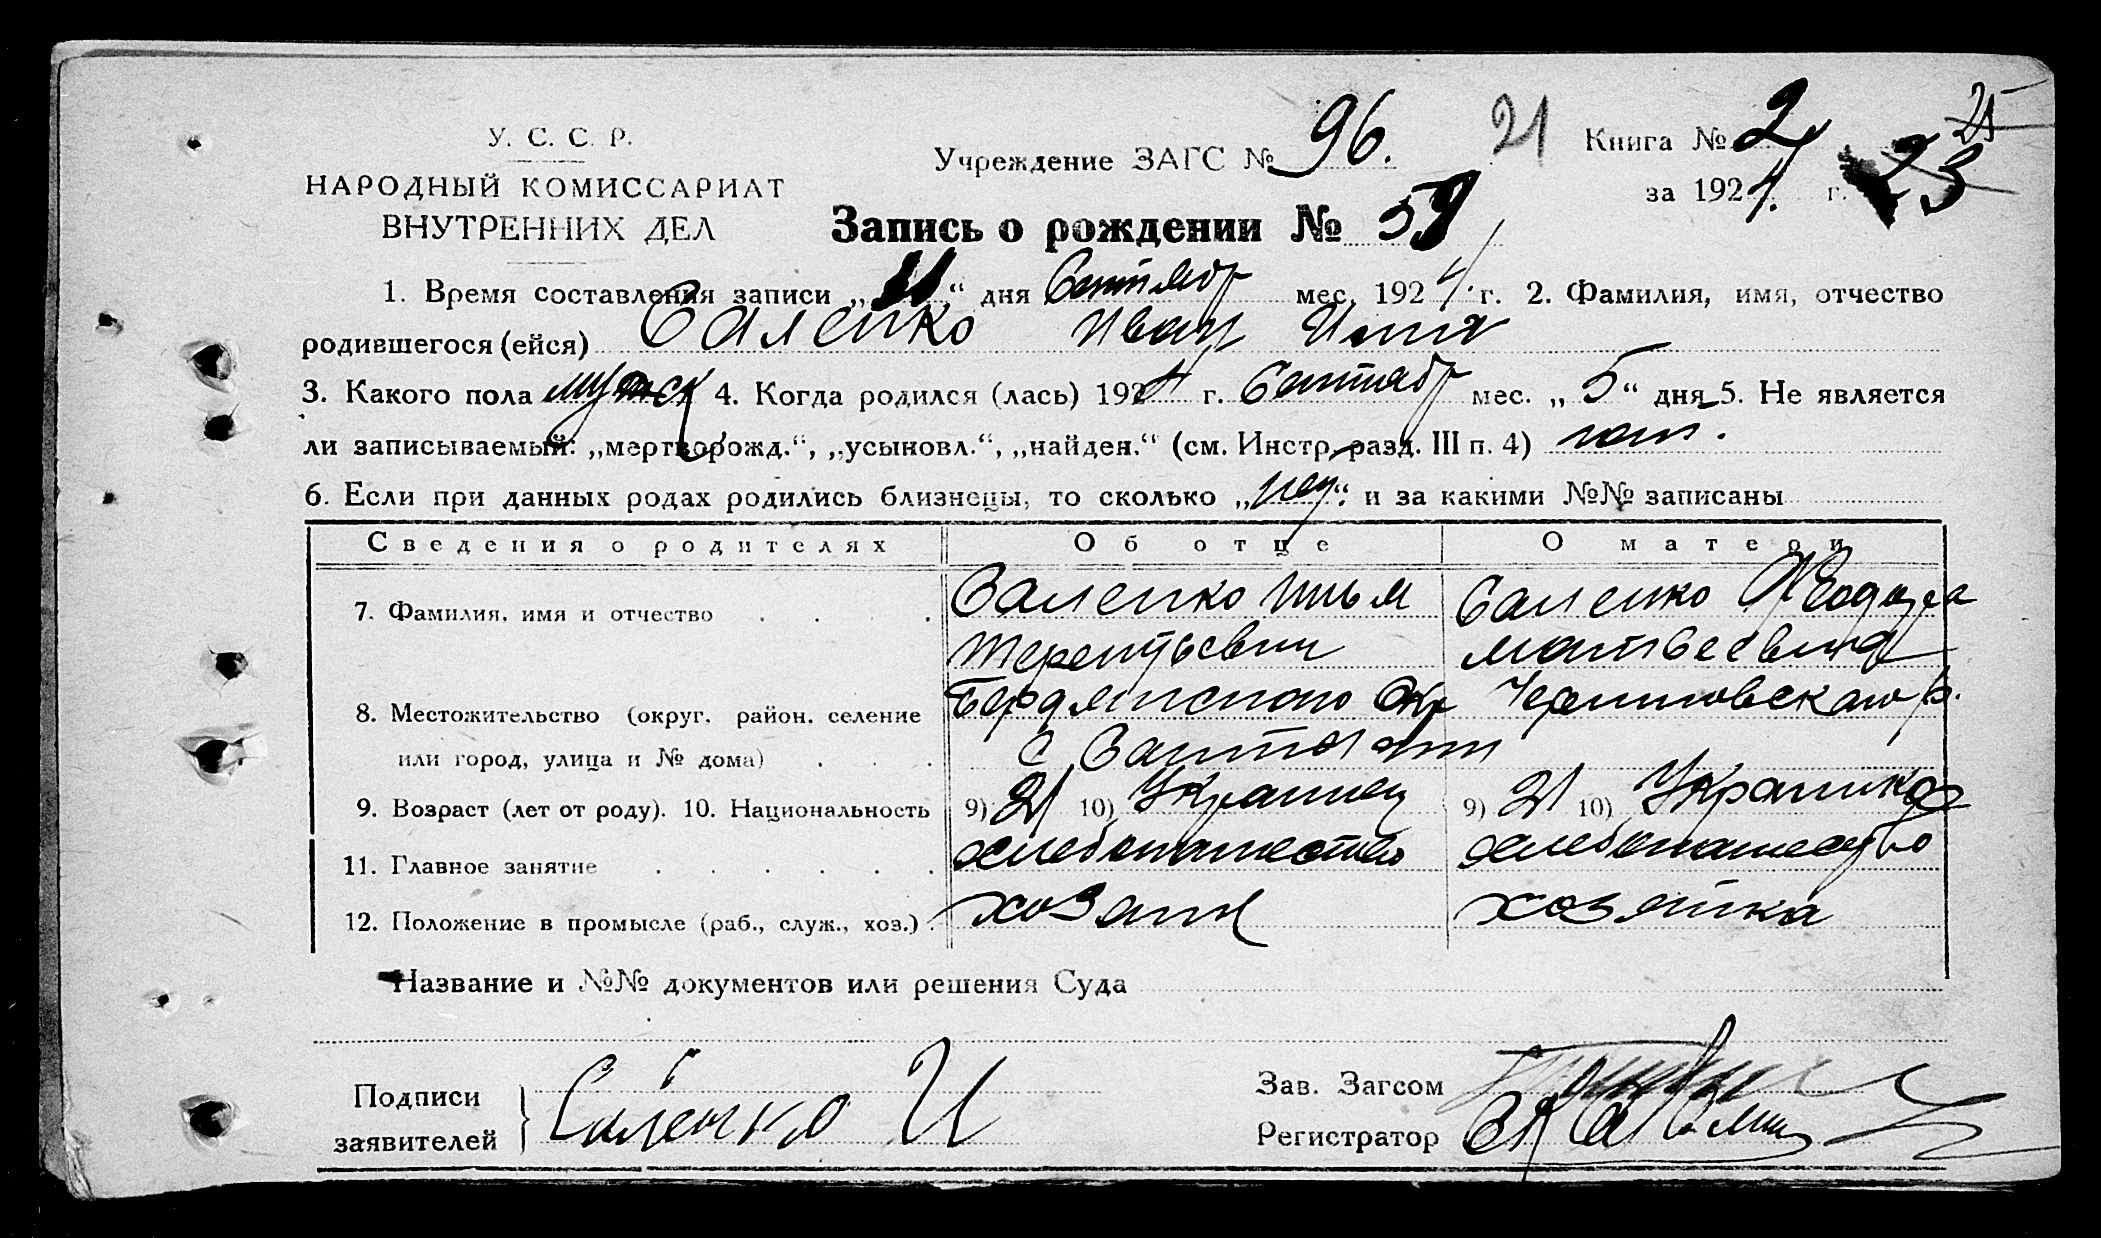 У. С. С. Р.
НАРОДНЫЙ КОМИССАРИАТ
ВНУТРЕННИХ ДЕЛ
Учреждение ЗАГС № 96.
21
Книга № 2
25
за 1924 г.
23
Запись о рождении № 59
1. Время составления записи „11“ дня Сентябр мес. 1924 г. 2. Фамилия, имя, отчество
родившегося (ейся) Саленко Иван Илия
3. Какого пола мужск 4. Когда родился (лась) 1924 г. Сентябр мес. „5“ дня 5. Не является
ли записываемый: „мертворожд.“, „усыновл.“, „найден.“ (см. Инстр. разд. III п. 4) нет.
6. Если при данных родах родились близнецы, то сколько „нет“ и за какими №№ записаны
Сведения о родителях Об отце О матери
7. Фамилия, имя и отчество Саленко Илья Саленко Феодора
Терентьевич Матвеевна
8. Местожительство (округ, район, селение Бердянского Окр Черниговскаго р.
или город, улица и № дома) с
9. Возраст (лет от роду). 10. Национальность 9) 21 10) Украинец 9) 21 10) Украинка
11. Главное занятие хлебопашество хлебопашество
12. Положение в промысле (раб., служ., хоз.) хозяин хозяйка
Название и №№ документов или решения Суда
Подписи
заявителей
Саленко И
Зав. Загсом
Регистратор